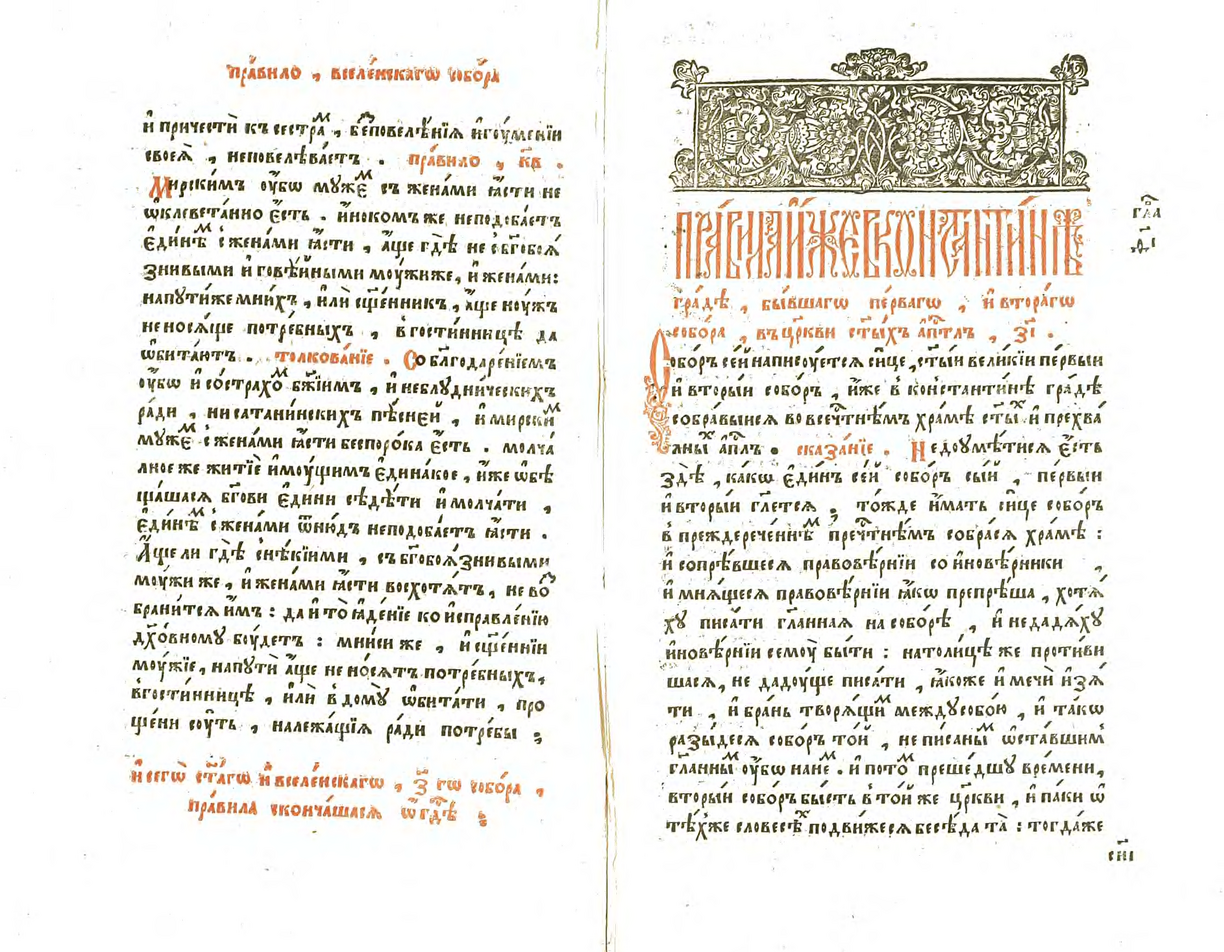 пра́вило , вселе́нскагѡ собо́ра
и҆ причестѝ къ сестра́ᷟ , беⷥповелѣ́нїѧ и҆гоу́менїи
своеѧ̀ , неповелѣва́етъ . пра́вило , к҃в .
Мирскимъ оу҆́бѡ муже́ᷟ съ жена́ми ꙗ҆́сти не
ѡ҆клеве́танно є҆́сть . и҆́нокомъ же неподоба́етъ
є҆ди́нѣᷟ с жена́ми ꙗ҆́сти , а҆́ще гдѣ̀ не с бг҃обоѧ́
знивыми и҆ говѣ́йными моу́жиже , и҆ жена́ми:
напути́же мни́хъ , и҆лѝ сщ҃е́нникъ , а҆́ще и҆ ноу́жъ
не носѧ́ще потре́бныхъ , в гости́нницѣ да
ѡ҆бита́ютъ . толкова́нїе . Со благодаре́нїемъ
оу҆́бѡ и҆ со стра́хоᷟ бж҃їимъ , и҆ неблудни́ческихъ
ра́ди , ни сатани́нскихъ пѣ́сней , и҆ мирски́ᷟ
муже́ᷟ с жена́ми ꙗ҆́сти беспоро́ка є҆́сть . молча́
лное же житїѐ и҆моу́щимъ є҆дина́кое , и҆́же ѡ҆бѣ
ща́шасѧ бг҃ови є҆ди́ни сѣдѣ́ти и҆ молча́ти ,
є҆ди́нѣᷟ с жена́ми ѿню́дъ неподоба́етъ ꙗ҆́сти .
А҆́ще ли гдѣ̀ с нѣ́кїими , съ бг҃обоѧ́знивыми
моу́жи же , и҆ жена́ми ꙗ҆́сти восхотѧ́тъ , не воⷥ
бранитсѧ и҆̀мъ : да и҆ то̀ ꙗ҆де́нїе ко и҆справле́нїю
дх҃о́вному боу́детъ : мни́си же , и҆ сщ҃е́ннїи
моу́жїе , напутѝ а҆́ще не но́сѧтъ потре́бныхъ ,
в гости́нницѣ , и҆лѝ в дому̀ ѡ҆бита́ти , про
ще́ни соу́ть , належа́щїѧ ра́ди потре́бы ;
и҆ сегѡ̀ ст҃а́гѡ и҆ вселе́нскагѡ , з҃ гѡ собо́ра ,
пра́вила скончашасѧ ѿгдѣ̀ ;
гла̀
д҃і
ПРА́ВИЛА И҆́ЖЕ В КОНСТАНТИ́НѢ
гра́дѣ , бы́вшагѡ пе́рвагѡ , и҆ втора́гѡ
собо́ра , въ цр҃кви ст҃ы́хъ а҆пⷭ҇тлъ , з҃і .
Собо́ръ се́й написоу́етсѧ си́це , ст҃ы́и вели́кїи пе́рвыи
и҆ вторы́и собо́ръ , и҆́же в константи́нѣ гра́дѣ
собра́выисѧ во все чⷭ҇тнѣ́мъ хра́мѣ ст҃ы́ⷯ и҆ прехва́
лны́ⷯ а҆пⷭ҇лъ . сказа́нїе . Недоумѣ́тисѧ є҆́сть
здѣ̀ , ка́кѡ є҆ди́нъ се́й собо́ръ сы́й , пе́рвыи
и҆ вторы́и гл҃етсѧ . то́жде и҆́мать си́це собо́ръ
в преждерече́ннѣᷟ пречⷭ҇тнѣ́мъ собра́сѧ хра́мѣ :
и҆ сопрѣ́вшесѧ правовѣ́рнїи со и҆новѣ́рники ,
и҆ мнѧ́щесѧ правовѣ́рнїи ꙗ҆́кѡ препрѣ́ша , хотѧ́
ху писа́ти гл҃анная на собо́рѣ , и҆ не дадѧ́ху
и҆новѣ́рнїи семоу̀ бы́ти : натоли́цѣ же проти́ви
шасѧ , не дадоу́ще писа́ти , ꙗ҆́коже и҆ мечѝ и҆зѧ́
ти , и҆ бра́нь творѧ́щиᷟ между собо́ю , и҆ та́кѡ
разы́десѧ собо́ръ то́й , не пи́саныᷟ ѡ҆ста́вшим
гл҃анныᷟ оу҆́бѡ на́неᷟ . и҆ пото́ᷟ преше́дшу вре́мени ,
вторы́и собо́ръ бы́сть в то́й же цр҃кви , и҆ па́ки ѡ҆
тѣ́хже словесѣ́ⷯ подви́жесѧ бесѣ́да та̀ : тогда́же
с҃иі